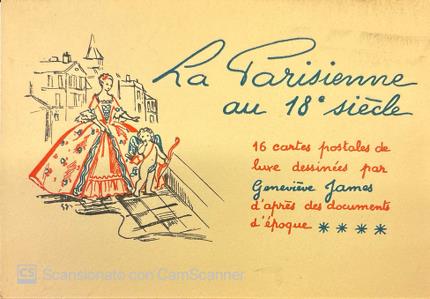 La Parisienne
au 18e siècle
16 cartes postales de
luxe dessinées par
Geneviève James
d'après des documents
d'époque ****
CS Scansionato con CamScanner